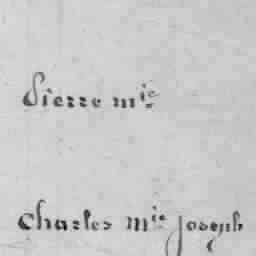 Pierre mie
Charles mie joseph